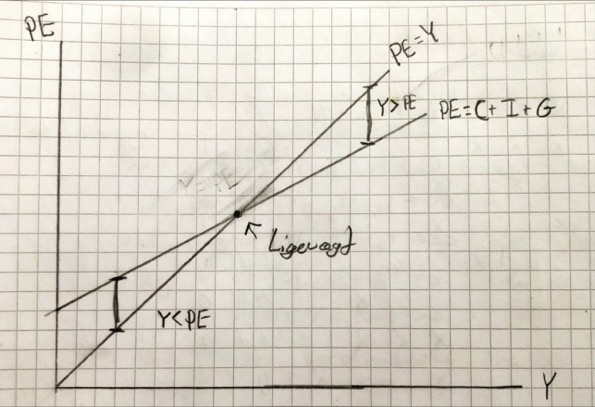 PE
PE=Y
Y>PE
PE=C+I+G
Ligevagt
Y<PE
Y